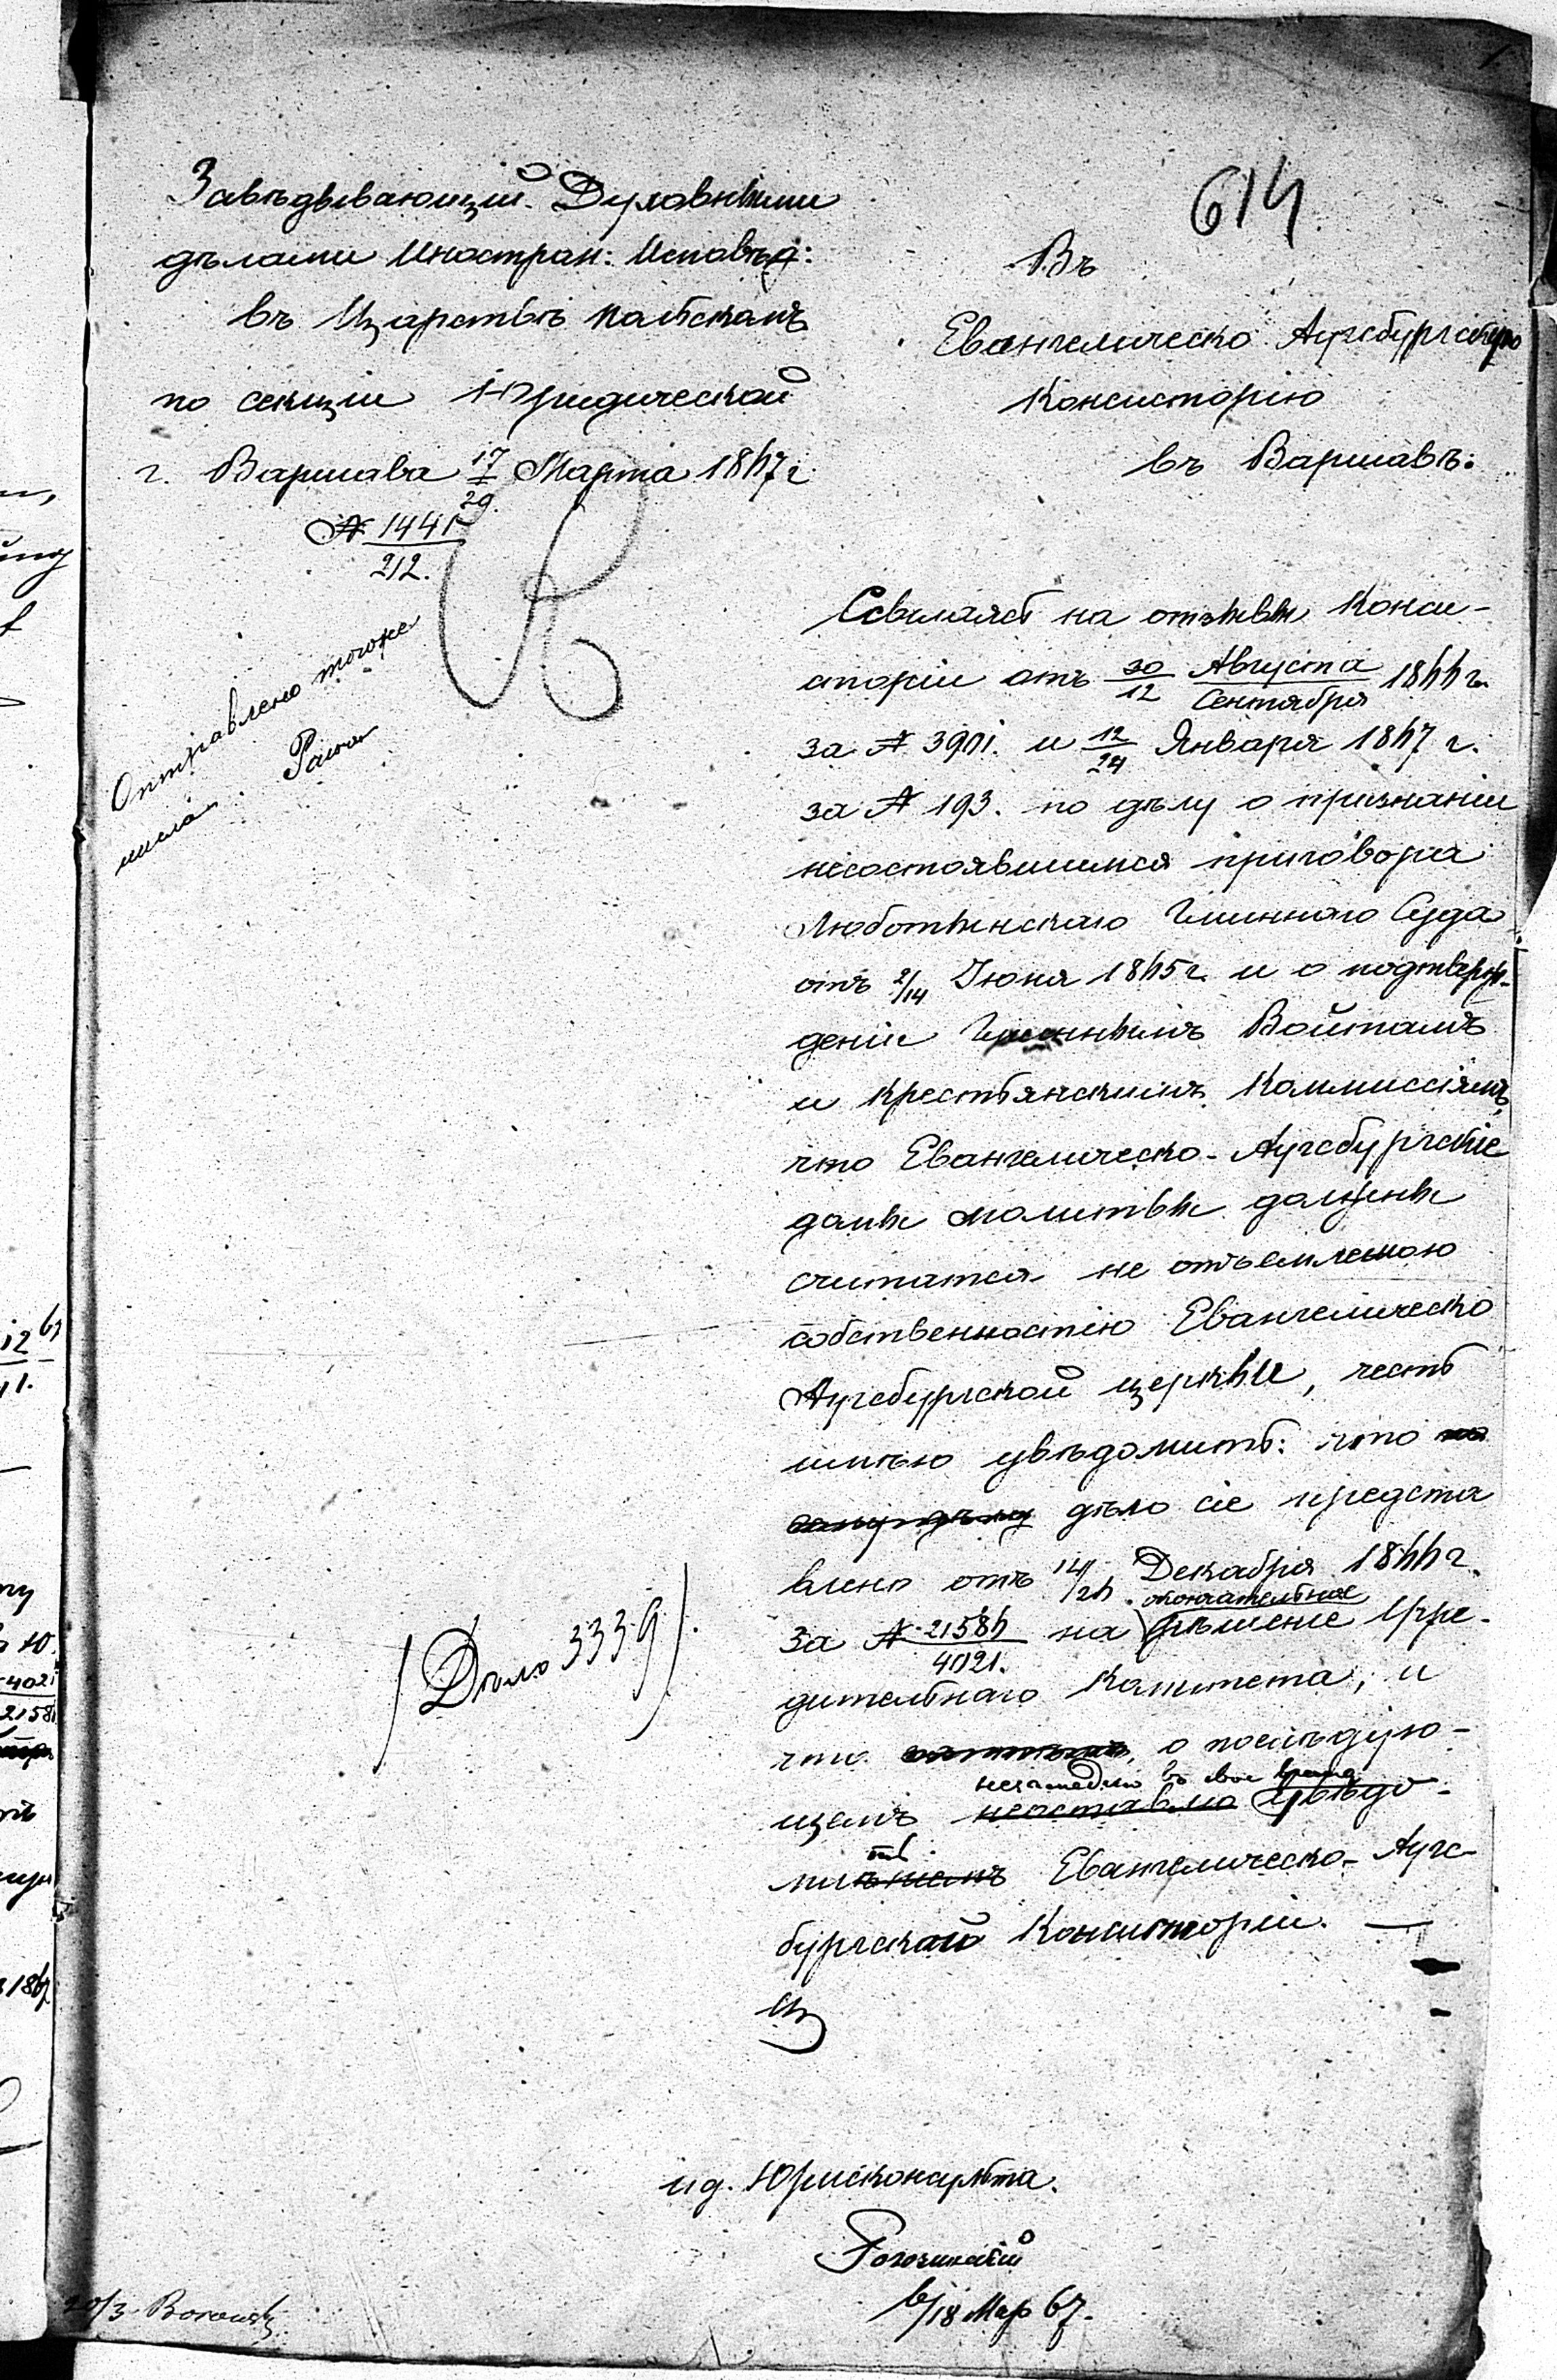 Завѣдывающій Духовными
дѣлами Иностран: Исповѣд:
въ Царствѣ Польскомъ
по секціи Юридической
г. Варшава 17/29 Марта 1867 г
№ 1441/212.
Отправлено тогоже
числа
614
Въ
Евангелическо Аугсбургскую
Консисторію
въ Варшавѣ:
Ссылаясь на отзывы Конси-
сторіи отъ 30/12 Августа/Сентября 1866 г.
за № 3901. и 12/24 Января 1867 г.
за № 193. по дѣлу о признаніи
несостоявшимся приговора
Люботынскаго Гминнаго Суда
отъ 2/14 Іюня 1865 г. и о подтверж-
деніи Гминнымъ Войтамъ
и Крестьянскимъ Коммиссіямъ,
что Евангелическо-Аугсбургскіе
домы молитвы должны
считатся не отъемлемою
собственностію Евангелическо
Аугсбургской церкви, честь
имѣю увѣдомить: что по
сему дѣлу дѣло сіе предста
влено отъ 14/26 Декабря 1866 г.
за № 21586/4021. на окончательное рѣшеніе Учре-
дительнаго Комитета, и
что о послѣдую-
щемъ неоставлю незамедлю въ свое время увѣдо-
мить Евангелическо-Аугс-
бургскою Консисторіи. —
(Дѣло 3339).
ид. Юрисконсульта.
6/18 Мар 67.
20/3